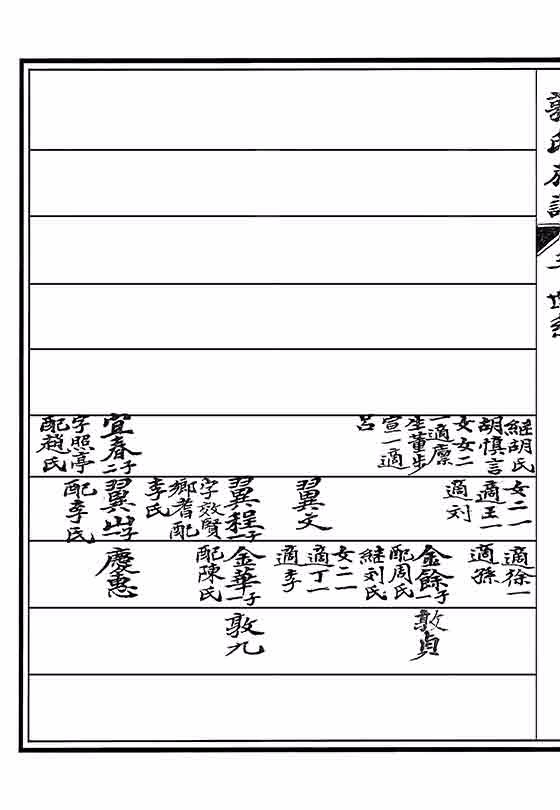 氏族譜
世系
継胡氏
胡慎言
女女二
一適廩
生董出
宣一適
呂
宜春子二
字照亭
配趙氏
女二一
適王一
適刘
翼文
翼程子一
字效賢
鄉耆配
李氏
翼山子一
配李氏
適徐一
適孫
金餘子一
配周氏
継刘氏
女二一
適丁一
適李
金華子一
配陳氏
慶惠
敦貞
敦九